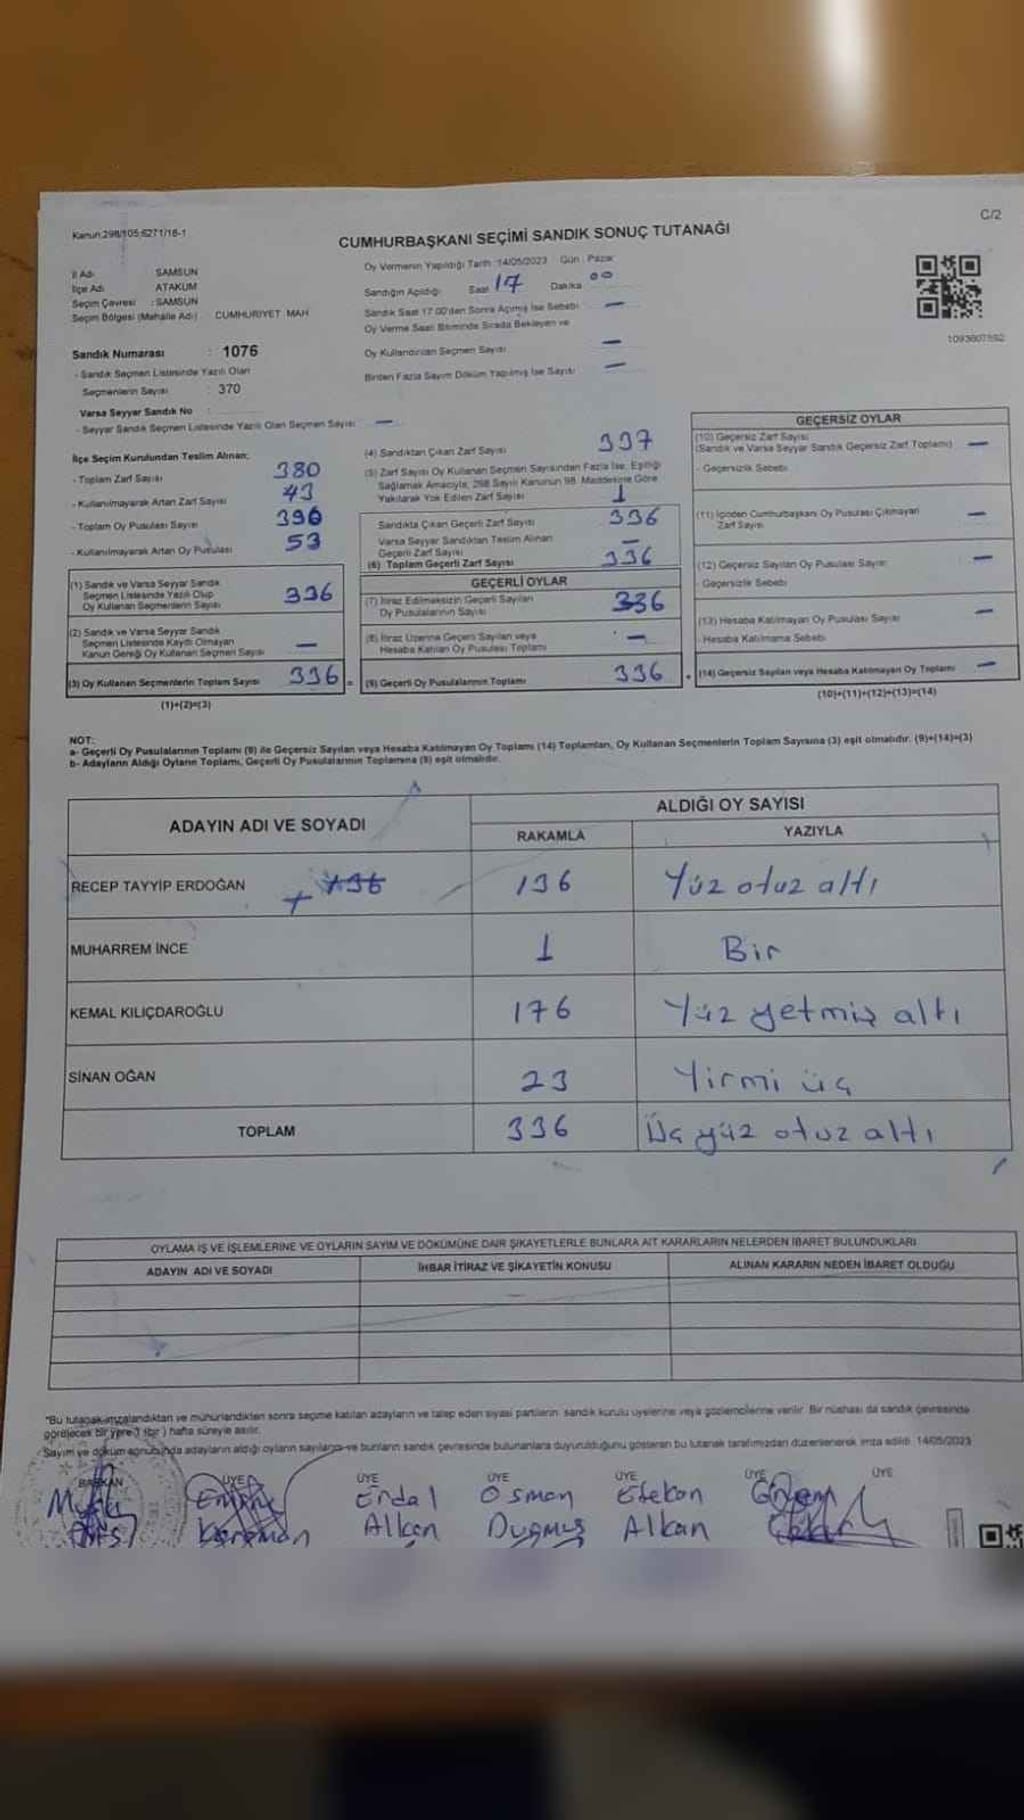 Kanun:298/105;6271/18-1
C/2
CUMHURBAŞKANI SEÇİMİ SANDIK SONUÇ TUTANAĞI
İl Adı SAMSUN
İlçe Adı ATAKUM
Seçim Çevresi : SAMSUN
Seçim Bölgesi (Mahalle Adı) CUMHURİYET MAH
Oy Vermenin Yapıldığı Tarih :14/05/2023 Gün : Pazar
Sandığın Açıldığı Saat 17 Dakika 00
Sandık Saat 17.00'den Sonra Açılmış İse Sebebi —
Oy Verme Saati Bitiminde Sırada Bekleyen ve
Oy Kullandırılan Seçmen Sayısı —
Birden Fazla Sayım Döküm Yapılmış İse Sayısı —
Sandık Numarası : 1076
- Sandık Seçmen Listesinde Yazılı Olan
Seçmenlerin Sayısı : 370
Varsa Seyyar Sandık No :
- Seyyar Sandık Seçmen Listesinde Yazılı Olan Seçmen Sayısı —
İlçe Seçim Kurulundan Teslim Alınan;
- Toplam Zarf Sayısı 380
- Kullanılmayarak Artan Zarf Sayısı 43
- Toplam Oy Pusulası Sayısı 390
- Kullanılmayarak Artan Oy Pusulası 53
(1) Sandık ve Varsa Seyyar Sandık
Seçmen Listesinde Yazılı Olup
Oy Kullanan Seçmenlerin Sayısı 336
(2) Sandık ve Varsa Seyyar Sandık
Seçmen Listesinde Kayıtlı Olmayan
Kanun Gereği Oy Kullanan Seçmen Sayısı —
(3) Oy Kullanan Seçmenlerin Toplam Sayısı 336 =
(1)+(2)=(3)
(4) Sandıktan Çıkan Zarf Sayısı 337
(5) Zarf Sayısı Oy Kullanan Seçmen Sayısından Fazla İse, Eşitliği
Sağlamak Amacıyla, 298 Sayılı Kanunun 98. Maddesine Göre
Yakılarak Yok Edilen Zarf Sayısı 1
Sandıkta Çıkan Geçerli Zarf Sayısı 336
Varsa Seyyar Sandıktan Teslim Alınan
Geçerli Zarf Sayısı —
(6) Toplam Geçerli Zarf Sayısı 336
GEÇERLİ OYLAR
(7) İtiraz Edilmeksizin Geçerli Sayılan
Oy Pusulalarının Sayısı 336
(8) İtiraz Üzerine Geçerli Sayılan veya
Hesaba Katılan Oy Pusulası Toplamı —
(9) Geçerli Oy Pusulalarının Toplamı 336 +
GEÇERSİZ OYLAR
(10) Geçersiz Zarf Sayısı
(Sandık ve Varsa Seyyar Sandık Geçersiz Zarf Toplamı) —
- Geçersizlik Sebebi
(11) İçinden Cumhurbaşkanı Oy Pusulası Çıkmayan
Zarf Sayısı —
(12) Geçersiz Sayılan Oy Pusulası Sayısı —
- Geçersizlik Sebebi
(13) Hesaba Katılmayan Oy Pusulası Sayısı —
- Hesaba Katılmama Sebebi
(14) Geçersiz Sayılan veya Hesaba Katılmayan Oy Toplamı —
(10)+(11)+(12)+(13)=(14)
NOT:
a- Geçerli Oy Pusulalarının Toplamı (9) ile Geçersiz Sayılan veya Hesaba Katılmayan Oy Toplamı (14) Toplamları, Oy Kullanan Seçmenlerin Toplam Sayısına (3) eşit olmalıdır. (9)+(14)=(3)
b- Adayların Aldığı Oyların Toplamı, Geçerli Oy Pusulalarının Toplamına (9) eşit olmalıdır.
ADAYIN ADI VE SOYADI ALDIĞI OY SAYISI
RAKAMLA YAZIYLA
RECEP TAYYİP ERDOĞAN 136 136 Yüz otuz altı
MUHARREM İNCE 1 Bir
KEMAL KILIÇDAROĞLU 176 Yüz yetmiş altı
SİNAN OĞAN 23 Yirmi üç
TOPLAM 336 Üç yüz otuz altı
OYLAMA İŞ VE İŞLEMLERİNE VE OYLARIN SAYIM VE DÖKÜMÜNE DAİR ŞİKAYETLERLE BUNLARA AİT KARARLARIN NELERDEN İBARET BULUNDUKLARI
ADAYIN ADI VE SOYADI İHBAR İTİRAZ VE ŞİKAYETİN KONUSU ALINAN KARARIN NEDEN İBARET OLDUĞU
*Bu tutanak imzalandıktan ve mühürlendikten sonra seçime katılan adayların ve talep eden siyasi partilerin sandık kurulu üyelerine veya gözlemcilerine verilir. Bir nüshası da sandık çevresinde
görülecek bir yere 1 (bir) hafta süreyle asılır.
Sayım ve döküm sonucunda adayların aldığı oyların sayılarıyla ve bunların sandık çevresinde bulunanlara duyurulduğunu gösteren bu tutanak tarafımızdan düzenlenerek imza edildi. 14/05/2023
BAŞKAN ÜYE ÜYE ÜYE ÜYE ÜYE ÜYE
Emine Erdal Osman Gizem
Karaman Alkan Durmuş Alkan